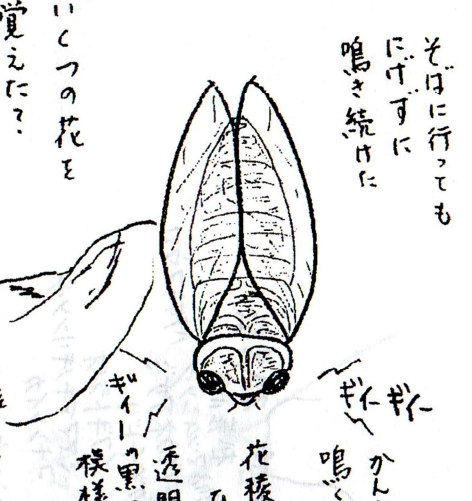 そばに行っても
にげずに
鳴き続けた
いくつの花を
覚えたか?
ギィー ギィー
かん
鳴く
花稜
ひ
透明
ギィーの黒
模様